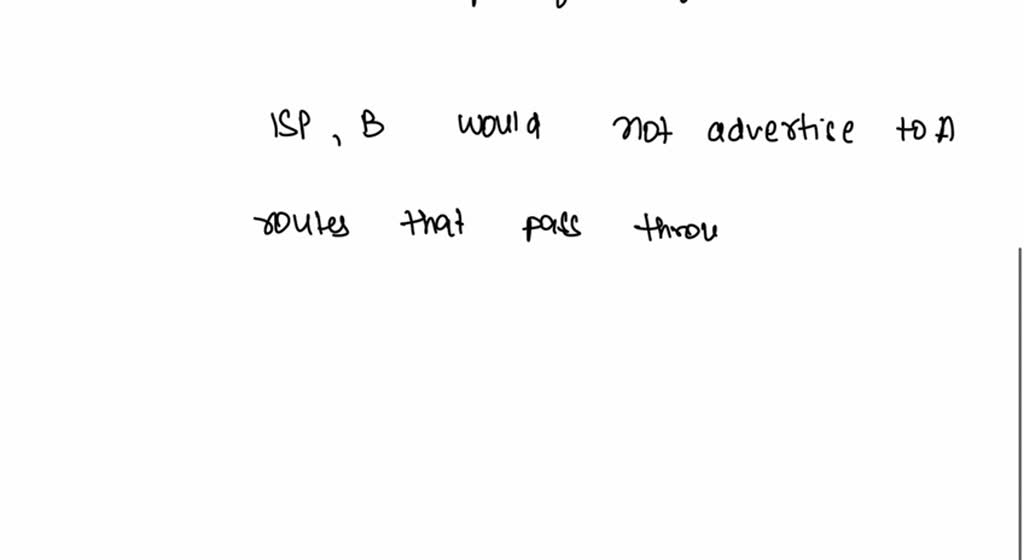 ISP, B would not advertice to A
routes that pass throu